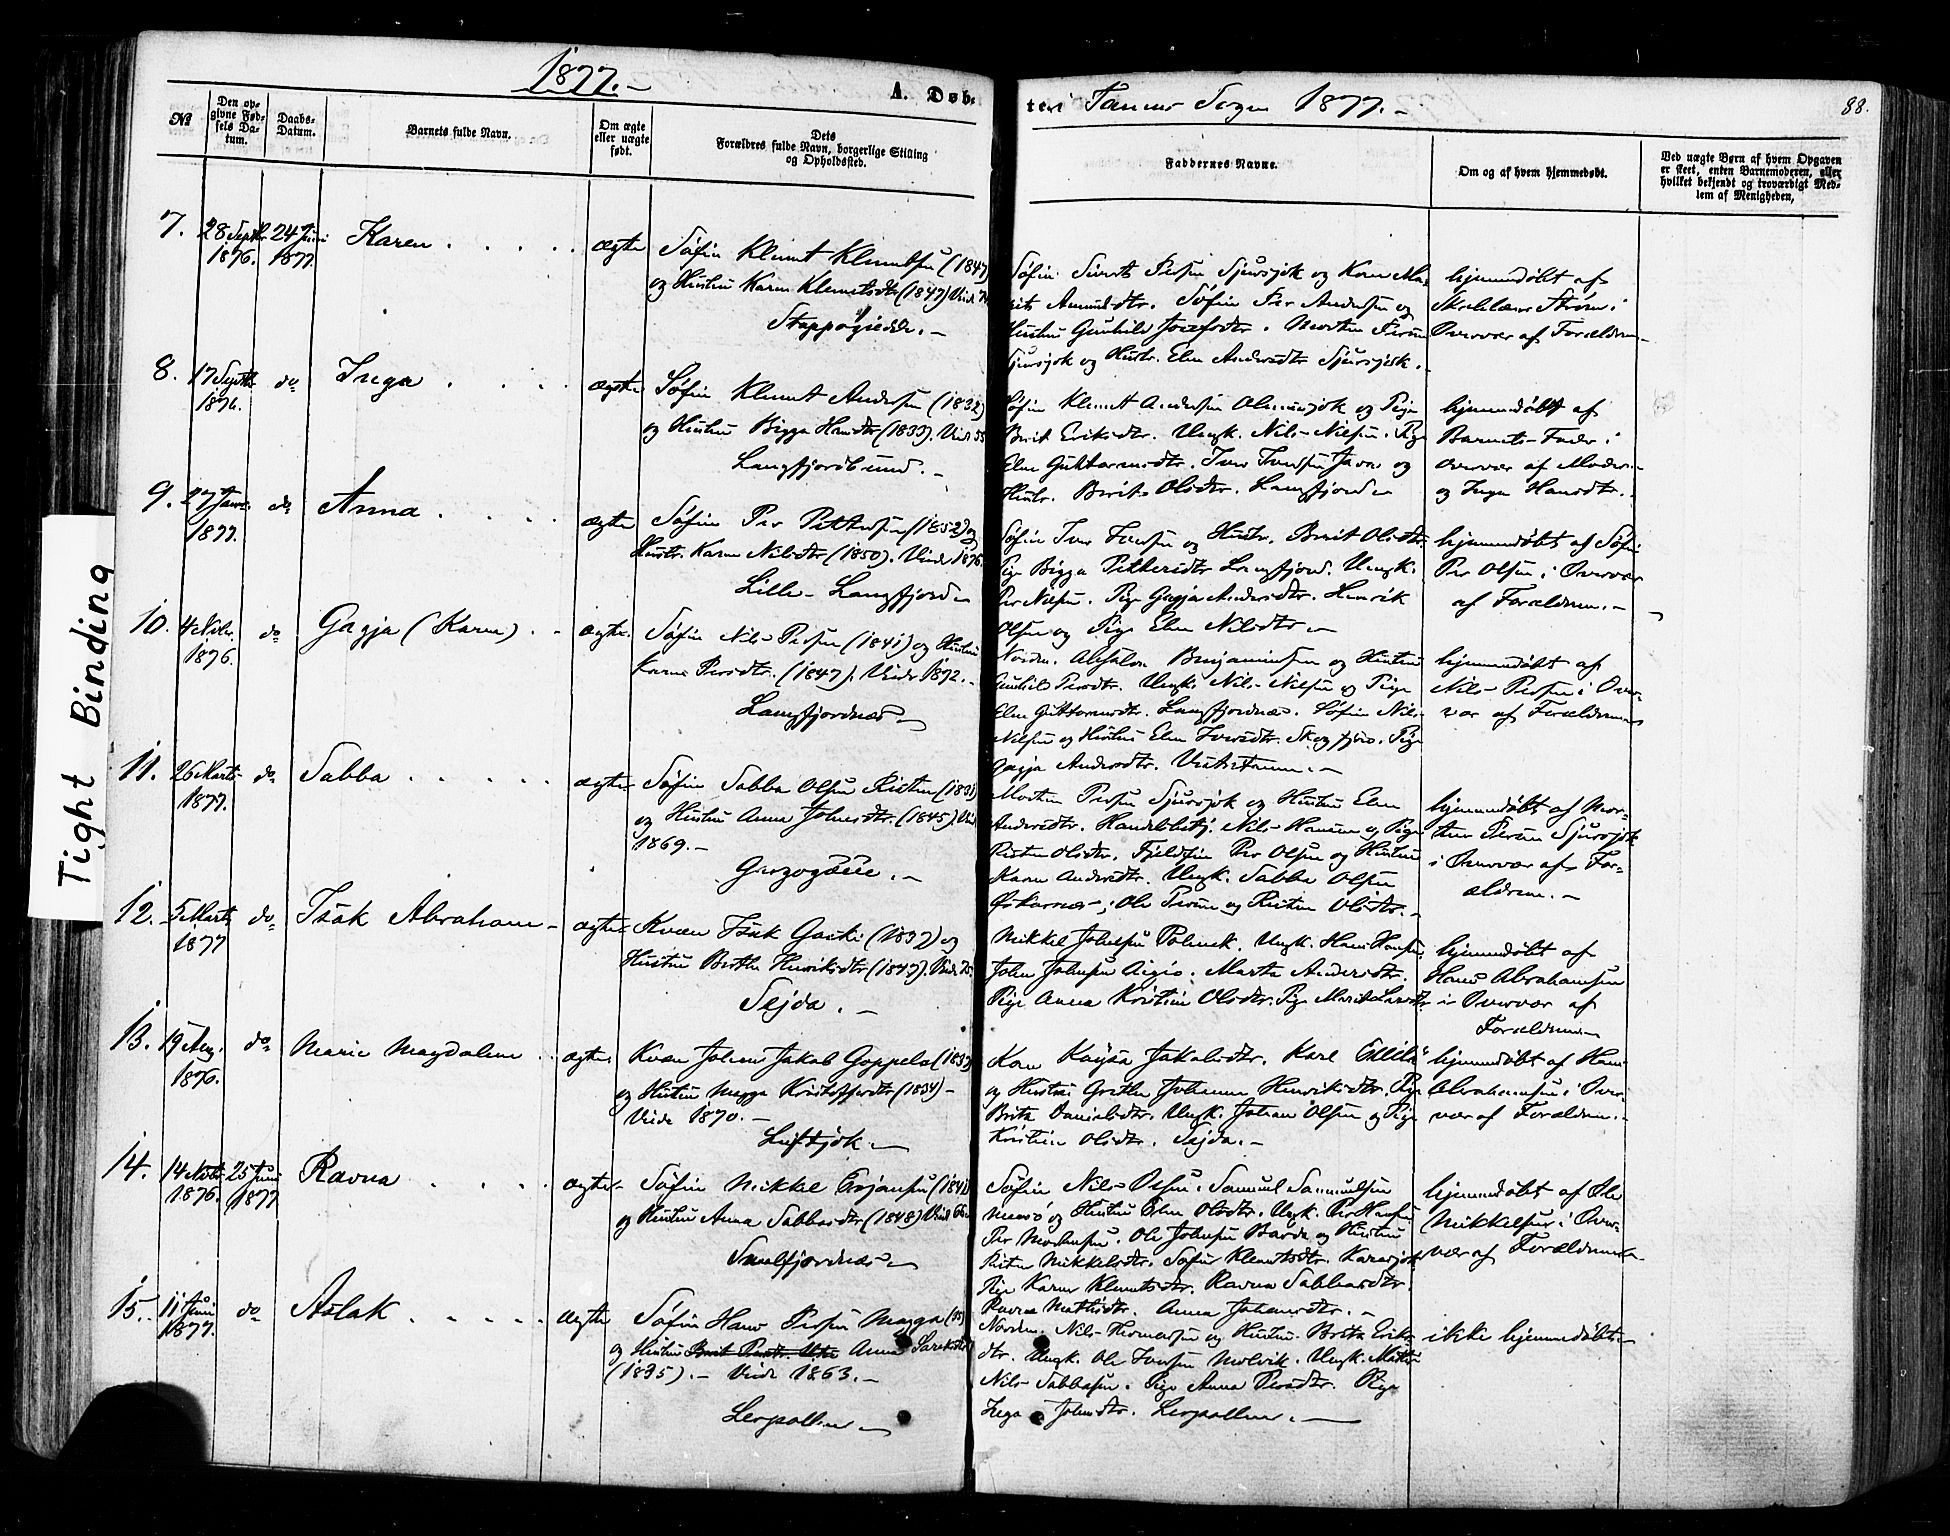 1877.-
A. Døb-
teri Tanens Sogn 1877.-
88.
No
Den op-
givne Fød-
sels Da-
tum.
Daabs-
Datum.
Barnets fulde Navn.
Om ægte
eller uægte
født.
Dets
Forældres fulde Navn, borgerlige Stilling
og Opholdsted.
Faddernes Navne.
Om og af hvem hjemmedøbt.
Ved uægte Børn af hvem Opgaven
er skeet, enten Barnemoderen, eller
hvilket bekjendt og troværdigt Med-
lem af Menigheden,
Tight Binding
7. 28 Septbr. 1876. 24 Juni 1877. Karen . . . . . ægte
Søfin Klemet Klemetsen (1847)
og Hustru Karen Klemetsdtr (1847) Viede
Stappogiedde. -
Søfin Sivert Persen Sjursjok og Kone Ma-
rits Amundsdtr. Søfin Per Andersen og
Hustru Gunhild Josefsdtr. Morten Persen
Sjursjok og Hustr. Elen Andersdtr Sjursjok.
hjemmedøbt af
Strøm i
Overvær af Forældrene
8. 17 Septbr. 1876. do Inga . . . . ægte
Søfin Klemet Andersen (1832)
og Hustru Bigga Hansdtr (1833). Viede 55
Langfjordbund. -
Søfin Klemet Andersen og Pige
Berit Eriksdtr. Ungk. Nils Nilsen. Pige
Elen Guttormsdtr. Iver Iversen Javre og
Hustr. Berit Olsdtr. Langfjord
hjemmedøbt af
Barnets Fader i
overvær af Moder
og Inga Hansdtr.
9. 27 Janr. 1877. do Anna . . . . ægte
Søfin Per Pettersen (1852) og
Hustr. Karen Nilsdtr (1850). Viede 1876.
Lille-Langfjord
Søfin Iver Iversen og Hustr. Berit Olsdtr.
Pige Bigga Pettersdtr Langfjord. Ungk.
Per Nilsen. Pige Gagja Andersdtr. Henrik
Olsen og Pige Elen Nilsdtr
hjemmedøbt af Søfin
Per Olsen i Overvær
af Forældrene. -
10. 4 Nvbr. 1876. do Gagja (Karen) . - ægte.
Søfin Nils Persen (1841) og Hustru
Karen Persdtr. (1847). Viede 1872. -
Langfjordnæs
Nordm. Absalon Benjaminsen og Hustru
Gunhild Persdtr. Ungk. Nils Nilsen og Pige
Elen Guttormsdtr. Langfjordnæs. Søfin Nils
Nilsen og Hustru Elen Iversdtr. Pige
Gagja Andersdtr. Vestertanen. -
hjemmedøbt af
Nils Persen i Over-
vær af Forældrene
11. 26 Marts 1877. do. Sabba . . . . . ægte
Søfin Sabba Olsen Risten (1831)
og Hustru Anna Johnsdtr. (1845). Viede
1869. -
Morten Persen Sjursjok og Hustru Elen
Andersdtr. Handelsbetj. Nils Hansen og Pige
Risten Olsdtr. Fjeldfin Per Olsen og Hustru
Karen Andersdtr. Ungk. Sabba Olsen
Ole Persen og Risten Olsdtr.
hjemmedøbt af Mor-
ten Persen Sjursjok
i Overvær af For-
ældrene. -
12. 5 Marts 1877 do. Isak Abraham - ægte
Kvæn Isak (1832) og
Hustru Berthe Henriksdtr (1847). Viede 75.
Sejda. -
Mikkel Johnsen Ungk. Hans Hansen.
John Johnsen Aigio. Marta Andersdtr.
Pige Anna Kristine Olsdtr. Pige Marit Larsdtr
hjemmedøbt af
Hans Abrahamsen
i Overvær af
Forældrene
13. 19 Aug. 1876. do. Marie Magdalene . . ægte.
Kvæn Johan Jakob Goppela (1833)
og Hustru Magga Kristoffersdtr (1834) -
Viede 1870. -
Luftjok. -
Kone Kaysa Jakobsdtr. Karl
og Hustru Grethe Johanne Henriksdtr. Pige
Brita Danielsdtr. Ungk. Johan Olsen og Pige
Kristine Olsdtr. Sejda. -
hjemmedøbt af Hans
Abrahamsen i Over-
vær af Forældrene. -
14. 14 Novbr 1876. 25 Juni 1877 Ravna . . . . . ægte
Søfin Mikkel (1841)
og Hustru Anna Sabbasdtr (1848) Viede
Smalfjordnæs
Søfin Nils Olsen. Samuel Samuelsen
og Hustru Elen Olsdtr. Ungk. Per Hansen
Per Mortensen. Ole Johnsen Varde og Hustru
Risten Mikkelsdtr. Klemetsdtr. Karasjok
Pige Karen Klemetsdtr. Ravna Sabbasdtr.
Ravna Mathisdtr. Anna Johansdtr. -
hjemmedøbt af Ole
Mikkelsen i Over-
vær af Forældrene
15. 11 Juni 1877. do Aslak . . . . . ægte
Søfin Hans Persen Magga (35)
og Hustru Berit Persdtr. Anna
(1835). - Viede 1863. -
Leerpollen
Nordm. Nils Thomassen og Hustru Brita Eriks-
dtr. Ungk. Ole Iversen Molvik. Ungk. Mathis
Nils Sabbasen. Pige Anna Persdtr. Pige
Inga Johnsdtr. Leerpollen. -
ikke hjemmedøbt